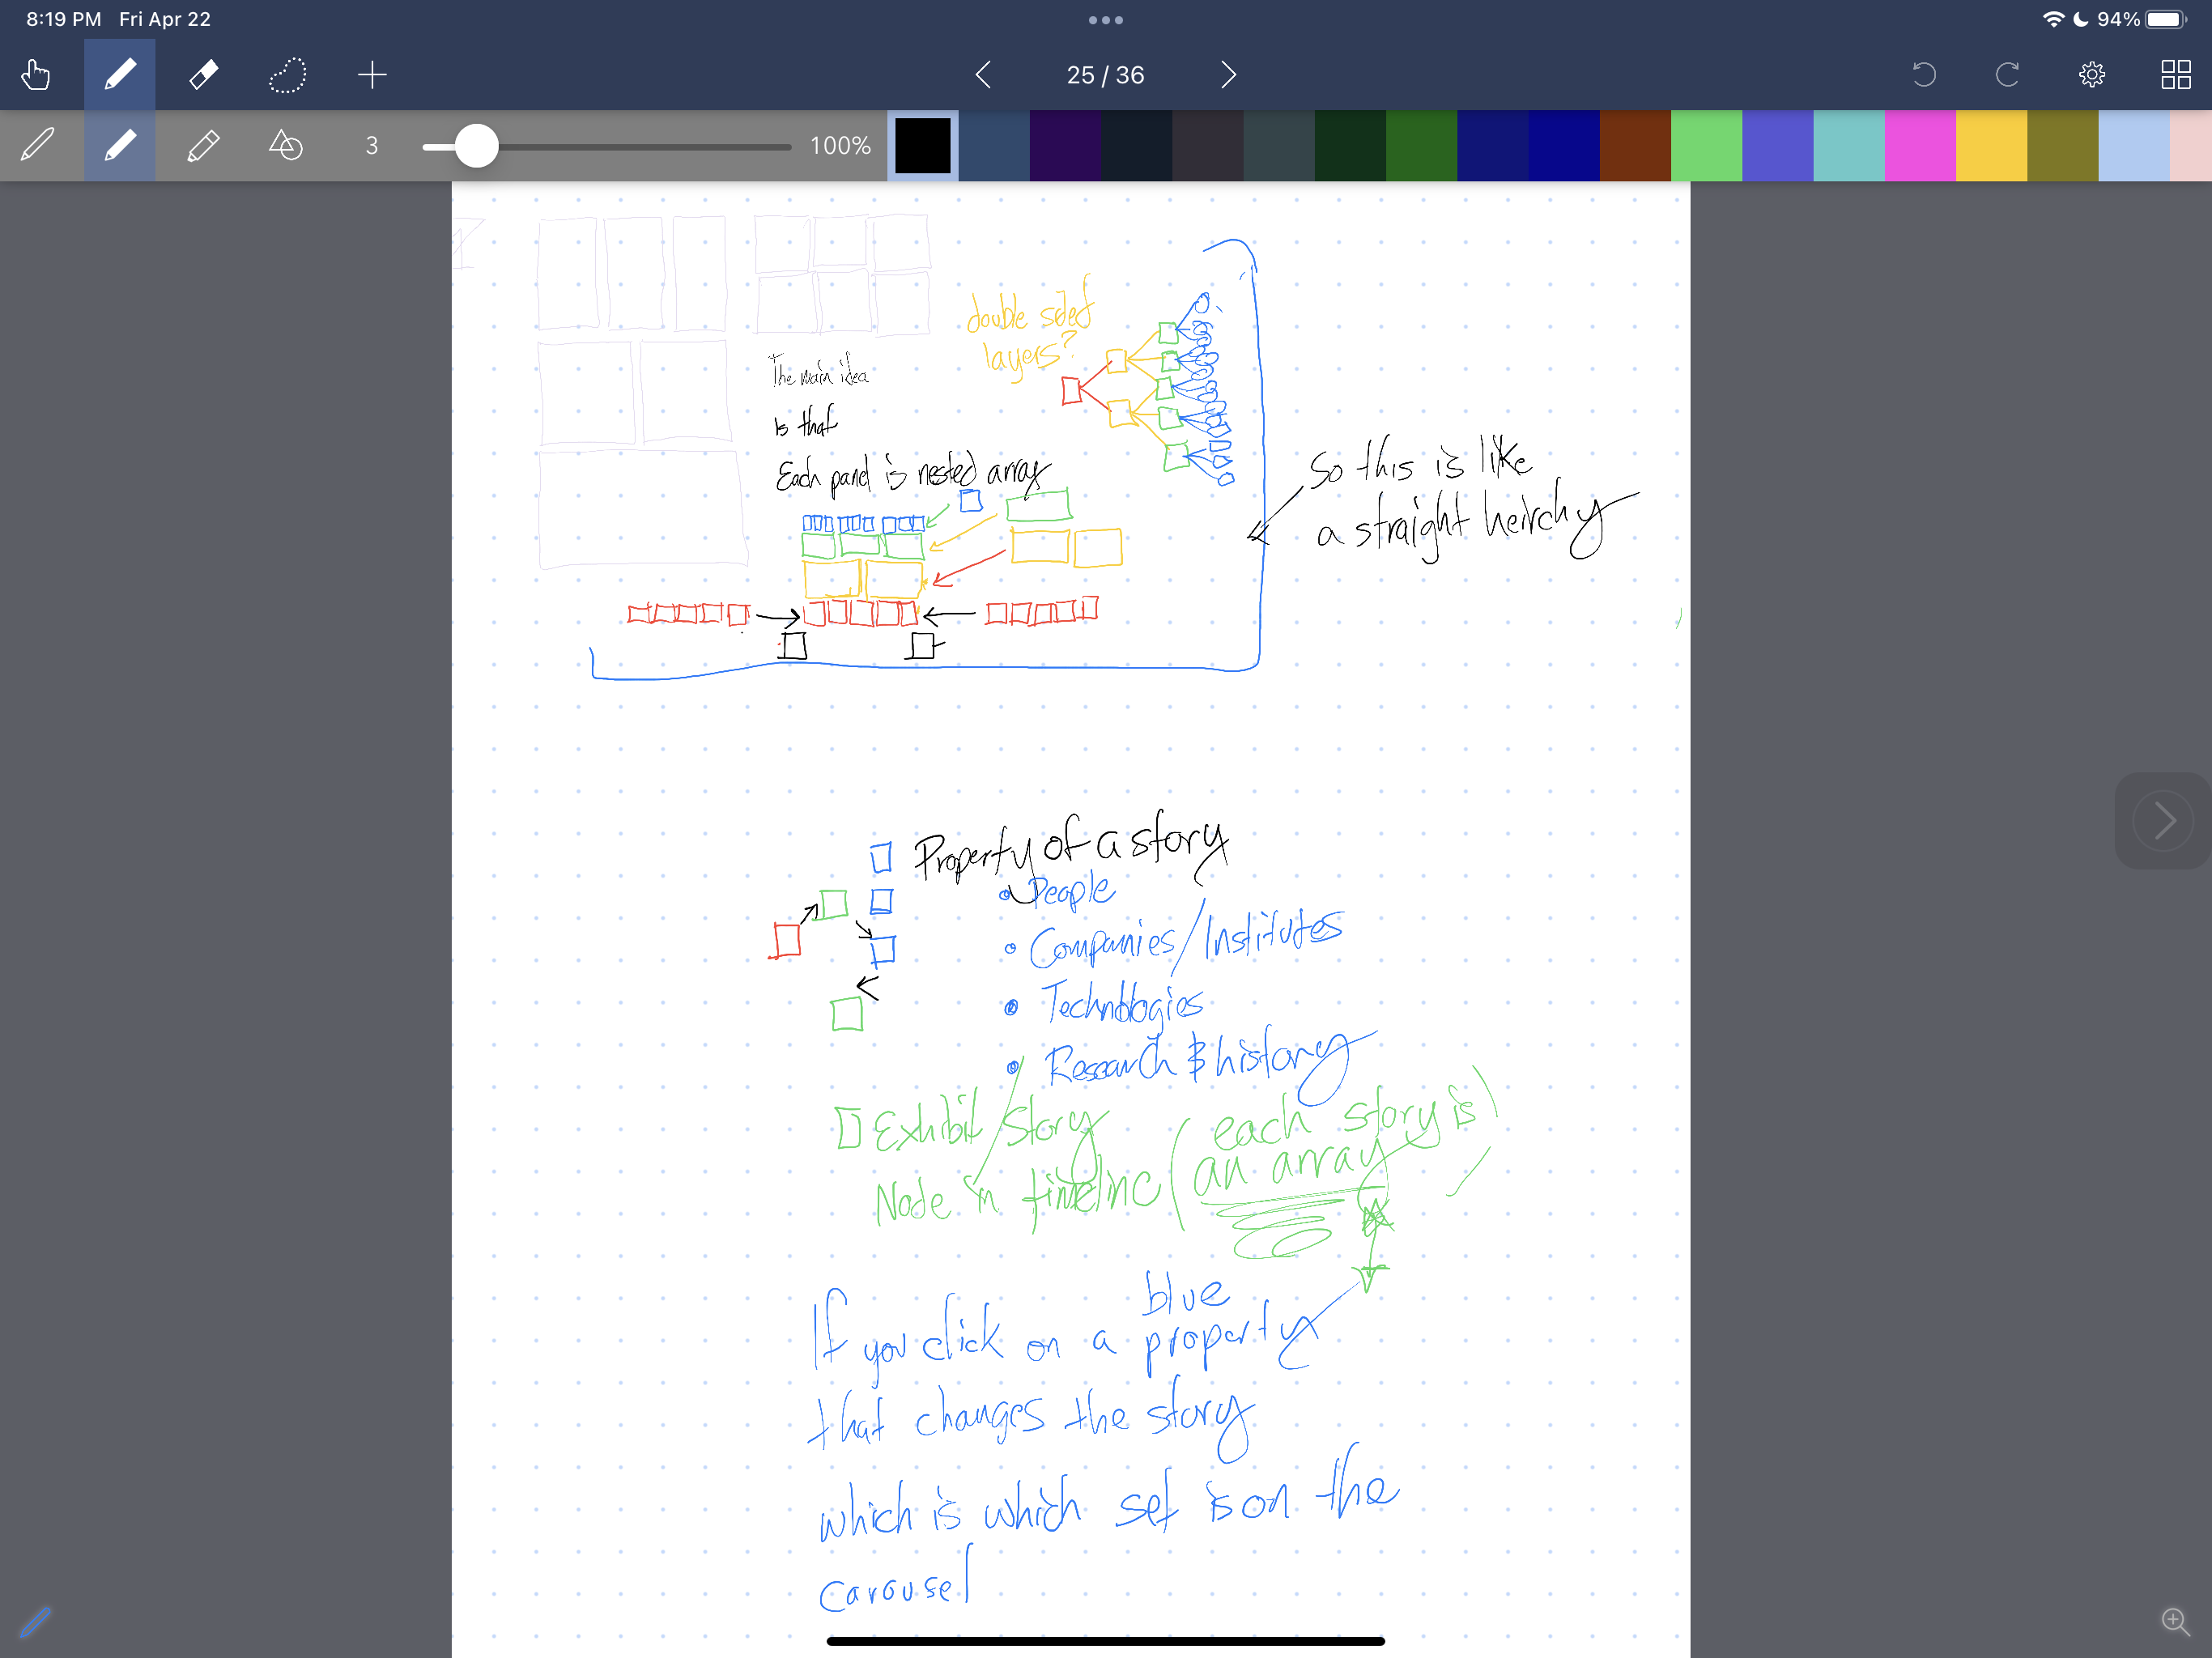 8:19 PM Fri Apr 22
94%
25 / 36
3
100%
double sided
layers?
The main idea
is that
Each panel is nested array
So this is like
a straight heirchy
Property of a story
• People
• Companies/Institutes
• Technologies
• Research & history
Exhibit/story
Node in timeline (each story is
an array)
blue
If you click on a property
that changes the story
which is which set is on the
carousel